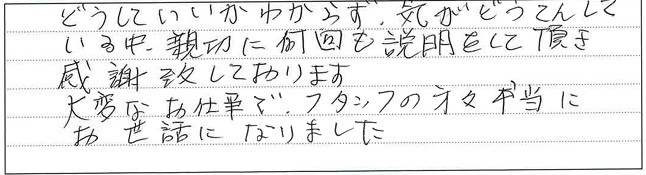 どうしていいかわからず、気がどうてんして
いる中、親切に何回も説明をして頂き
感謝致しております
大変なお仕事で、スタッフの方々本当に
お世話になりました